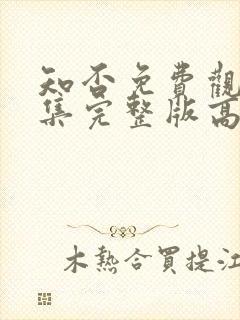 知否免費觀
集完整版高
木熱合買提江